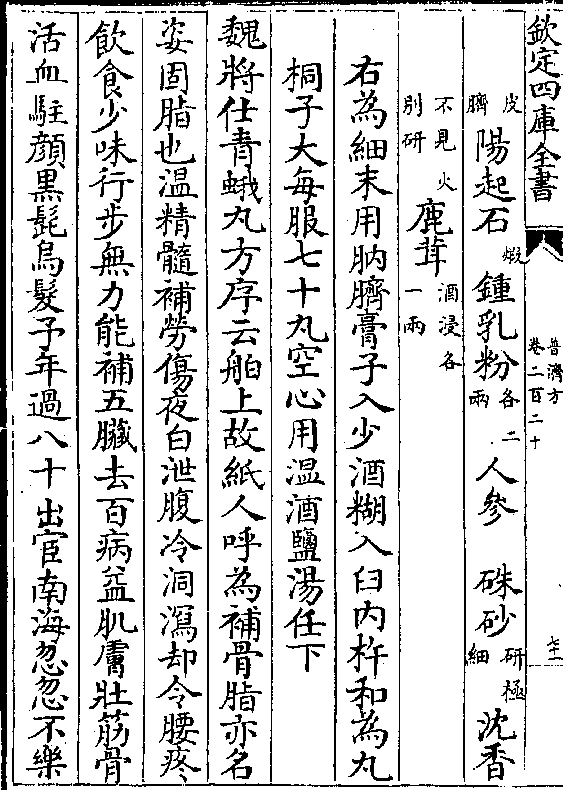 欽定四庫全書
普濟方
卷二百二十
七十一
皮臍陽起石煅鍾乳粉各二兩人參硃砂研極細沈香
不見火別研鹿茸酒浸各一兩
右為細末用肭臍膏子入少酒糊入臼内杵和為丸
桐子大每服七十丸空心用温酒鹽湯任下
魏將仕青蛾丸方序云舶上故紙人呼為補骨脂亦名
姿固脂也温精髓補勞傷夜白泄腹冷洞瀉却令腰疼
飲食少味行步無力能補五臟去百病益肌膚壯筋骨
活血駐顔黒髭烏髮予年過八十出宦南海忽忽不樂